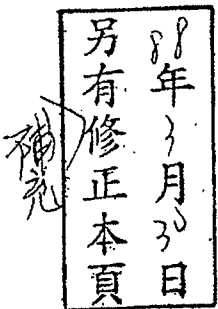 88年3月30日
另有修正本頁
補充